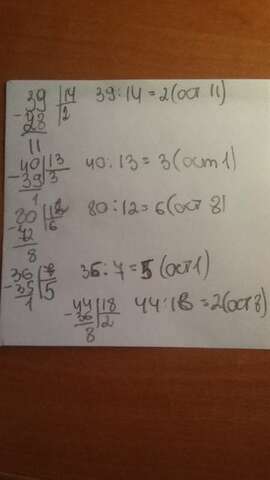 39 | 14 39 : 14 = 2 (ост 11)
- 28 | 2
11
40 | 13 40 : 13 = 3 (ост 1)
- 39 | 3
1
80 | 12 80 : 12 = 6 (ост 8)
- 72 | 6
8
36 | 7 36 : 7 = 5 (ост 1)
- 35 | 5
1
44 | 18 44 : 18 = 2 (ост 8)
- 36 | 2
8